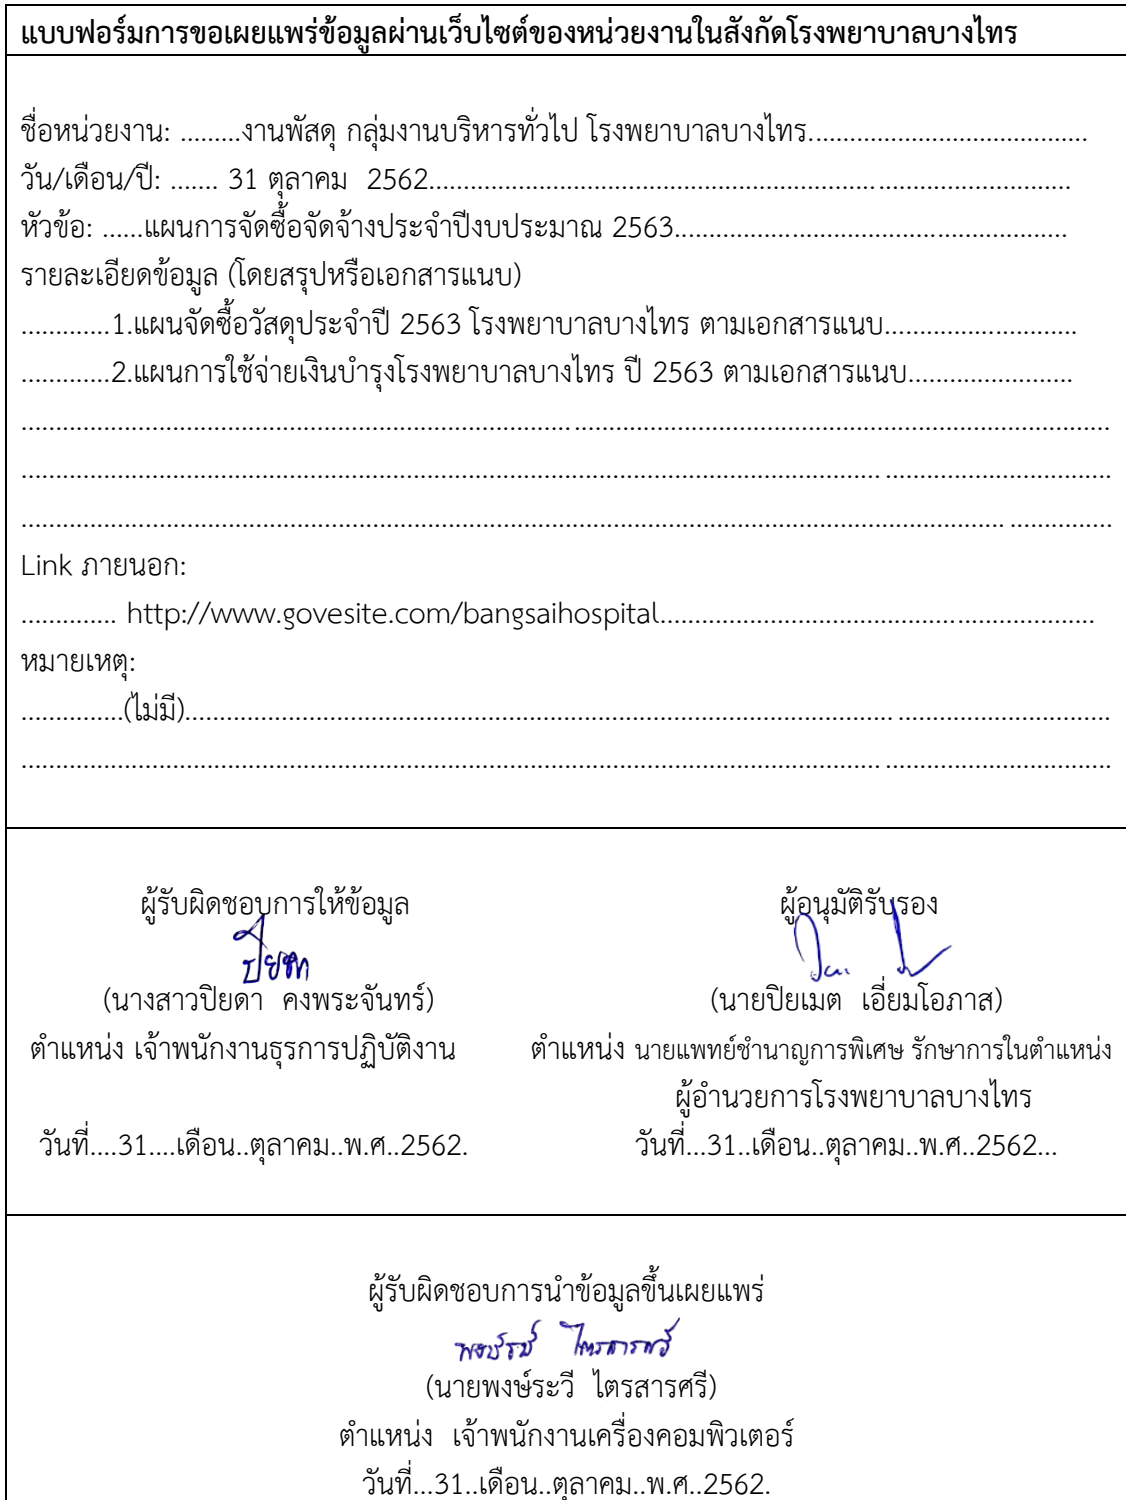 แบบฟอร์มการขอเผยแพร่ข้อมูลผ่านเว็บไซต์ของหน่วยงานในสังกัดโรงพยาบาลบางไทร
ชื่อหน่วยงาน: .........งานพัสดุ กลุ่มงานบริหารทั่วไป โรงพยาบาลบางไทร.........................................
วัน/เดือน/ปี: ....... 31 ตุลาคม 2562..............................................................................................
หัวข้อ: ......แผนการจัดซื้อจัดจ้างประจำปีงบประมาณ 2563.........................................................
รายละเอียดข้อมูล (โดยสรุปหรือเอกสารแนบ)
.............1.แผนจัดซื้อวัสดุประจำปี 2563 โรงพยาบาลบางไทร ตามเอกสารแนบ............................
.............2.แผนการใช้จ่ายเงินบำรุงโรงพยาบาลบางไทร ปี 2563 ตามเอกสารแนบ........................
................................................................................................................................................................
................................................................................................................................................................
................................................................................................................................................................
Link ภายนอก:
.............. http://www.govesite.com/bangsaihospital...............................................................
หมายเหตุ:
...............(ไม่มี).......................................................................................................................................
................................................................................................................................................................
ผู้รับผิดชอบการให้ข้อมูล
ปิยดา
(นางสาวปิยดา คงพระจันทร์)
ตำแหน่ง เจ้าพนักงานธุรการปฏิบัติงาน
วันที่....31....เดือน..ตุลาคม..พ.ศ..2562.
ผู้อนุมัติรับรอง
(นายปิยเมต เอี่ยมโอภาส)
ตำแหน่ง นายแพทย์ชำนาญการพิเศษ รักษาการในตำแหน่ง
ผู้อำนวยการโรงพยาบาลบางไทร
วันที่...31..เดือน..ตุลาคม..พ.ศ..2562...
ผู้รับผิดชอบการนำข้อมูลขึ้นเผยแพร่
พงษ์ระวี ไตรสารศรี
(นายพงษ์ระวี ไตรสารศรี)
ตำแหน่ง เจ้าพนักงานเครื่องคอมพิวเตอร์
วันที่...31..เดือน..ตุลาคม..พ.ศ..2562.